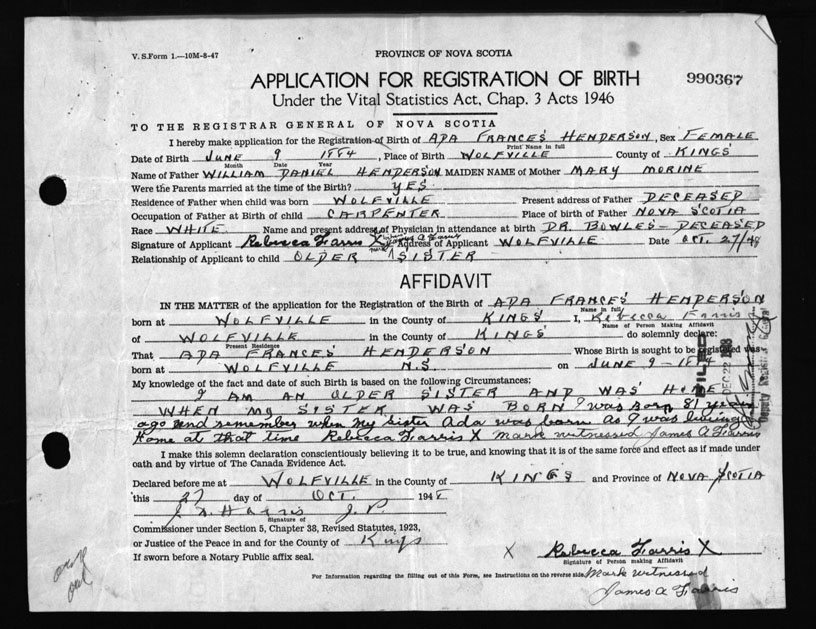 V. S. Form 1.—10M-8-47
PROVINCE OF NOVA SCOTIA
APPLICATION FOR REGISTRATION OF BIRTH
990367
Under the Vital Statistics Act, Chap. 3 Acts 1946
TO THE REGISTRAR GENERAL OF NOVA SCOTIA
I hereby make application for the Registration of Birth of ADA FRANCES HENDERSON, Sex FEMALE
Print Name in full
Date of Birth JUNE 9 1884, Place of Birth WOLFVILLE County of KINGS
Month Date Year
Name of Father WILLIAM DANIEL HENDERSON MAIDEN NAME of Mother MARY MORINE
Were the Parents married at the time of the Birth? YES
Residence of Father when child was born WOLFVILLE Present address of Father DECEASED
Occupation of Father at Birth of child CARPENTER Place of birth of Father NOVA SCOTIA
Race WHITE Name and present address of Physician in attendance at birth DR. BOWLES - DECEASED
Signature of Applicant Rebecca Farris X Address of Applicant WOLFVILLE Date OCT. 27/48
Relationship of Applicant to child OLDER SISTER
AFFIDAVIT
IN THE MATTER of the application for the Registration of Birth of ADA FRANCES HENDERSON
Name in full
born at WOLFVILLE in the County of KINGS I, Rebecca Farris
Name of Person Making Affidavit
of WOLFVILLE in the County of KINGS do solemnly declare:
Present Residence
That ADA FRANCES HENDERSON Whose Birth is sought to be registered was
born at WOLFVILLE N.S. on JUNE 9 - 1884
My knowledge of the fact and date of such Birth is based on the following Circumstances:
I AM AN OLDER SISTER AND WAS HOME
WHEN MY SISTER WAS BORN I was born 81 years
ago and remember when my sister Ada was born as I was living
home at that time Rebecca Farris X mark witnessed James A Farris
FILED
DEC 22 1948
I make this solemn declaration conscientiously believing it to be true, and knowing that it is of the same force and effect as if made under
oath and by virtue of The Canada Evidence Act.
Declared before me at WOLFVILLE in the County of KINGS and Province of NOVA SCOTIA
this 27 day of OCT. 1948
J. P.
Signature of
Commissioner under Section 5, Chapter 38, Revised Statutes, 1923,
or Justice of the Peace in and for the County of Kings
If sworn before a Notary Public affix seal.
X Rebecca Farris X
Signature of Person making Affidavit
For Information regarding the filling out of this Form, see Instructions on the reverse side
Mark witnessed
James A Farris